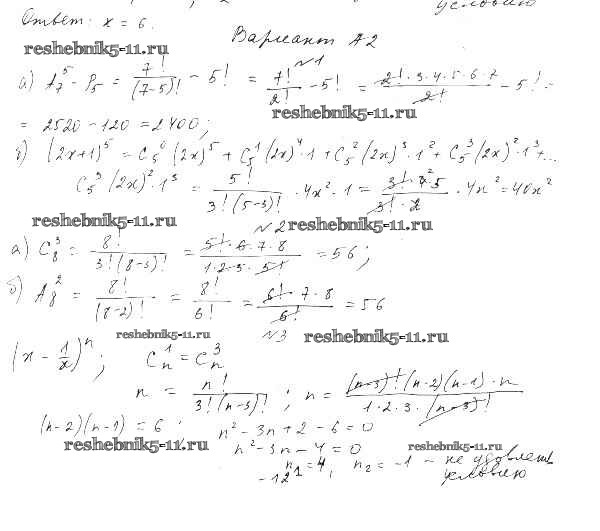 условию
Ответ: x = 6.
reshebnik5-11.ru
Вариант А2
№1
а) A₇⁵ - P₅ = 7!/(7-5)! - 5! = 7!/2! - 5! = 2!·3·4·5·6·7/2! - 5! =
reshebnik5-11.ru
= 2520 - 120 = 2400;
б) (2x+1)⁵ = C₅⁰(2x)⁵ + C₅¹(2x)⁴·1 + C₅²(2x)³·1² + C₅³(2x)²·1³+...
C₅³(2x)²·1³ = 5!/3!(5-3)! · 4x²·1 = 3!·4·5/3!·2 · 4x² = 40x²
reshebnik5-11.ru
№2 reshebnik5-11.ru
а) C₈³ = 8!/3!(8-3)! = 5!·6·7·8/1·2·3·5! = 56;
б) A₈² = 8!/(8-2)! = 8!/6! = 6!·7·8/6! = 56
reshebnik5-11.ru
№3 reshebnik5-11.ru
(x - 1/x)ⁿ; Cₙ¹ = Cₙ³
n = n!/3!(n-3)! ; n = (n-3)!(n-2)(n-1)·n/1·2·3·(n-3)!
(n-2)(n-1) = 6 n² - 3n + 2 - 6 = 0
reshebnik5-11.ru
n² - 3n - 4 = 0
reshebnik5-11.ru
n₁ = 4, n₂ = -1 - не удовлет.
условию
-12